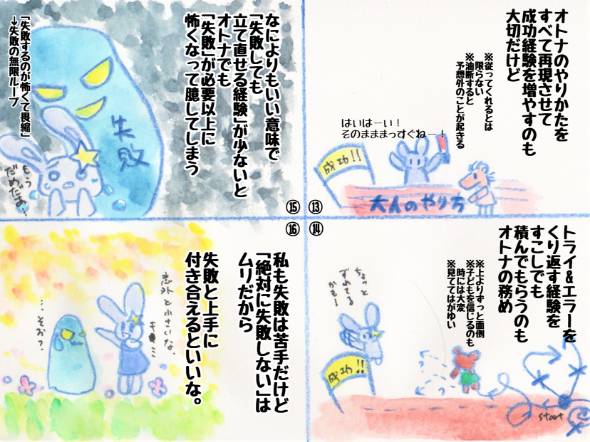 オトナのやりかたを
すべて再現させて
成功経験を増やすのも
大切だけど
※従ってくれるとは
限らない
※油断すると
予想外のことが起きる
はいはーい！
そのまままっすぐねー！
成功!!
大人のやり方
⑬
⑭
トライ&エラーを
くり返す経験を
すこしでも
積んでもらうのも
オトナの務め
※上よりずっと面倒
※子どもを信じるのも
時には大変
※見ててはがゆい
ちょっと
ずれてる
かもー
成功!!
start
⑮
なによりもいい意味で
「失敗しても
立て直せる経験」が少ないと
オトナでも
「失敗」が必要以上に
怖くなって臆してしまう
失敗
もう
だめだぁ!
「失敗するのが怖くて畏縮」
→失敗の無限ループ
⑯
私も失敗は苦手だけど
「絶対に失敗しない」は
ムリだから
失敗と上手に
付き合えるといいな。
意外と小さいな、
キミ…
…そお？